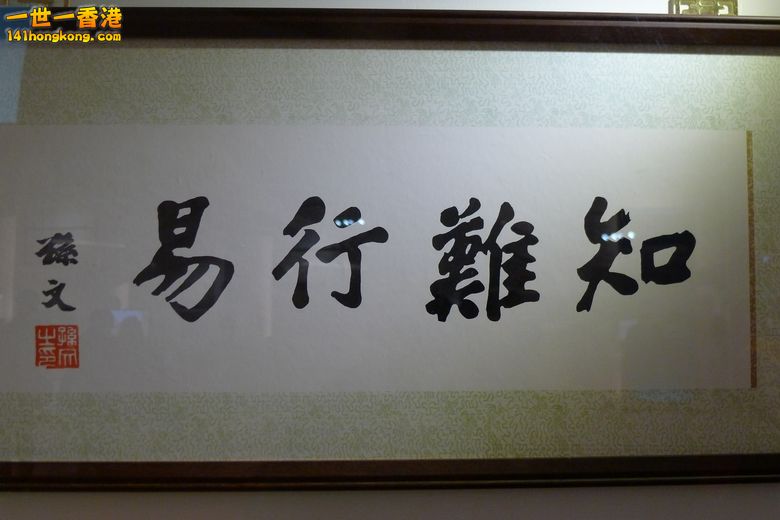 一世一香港
141hongkong.com
知難行易
孫文
孫文之印